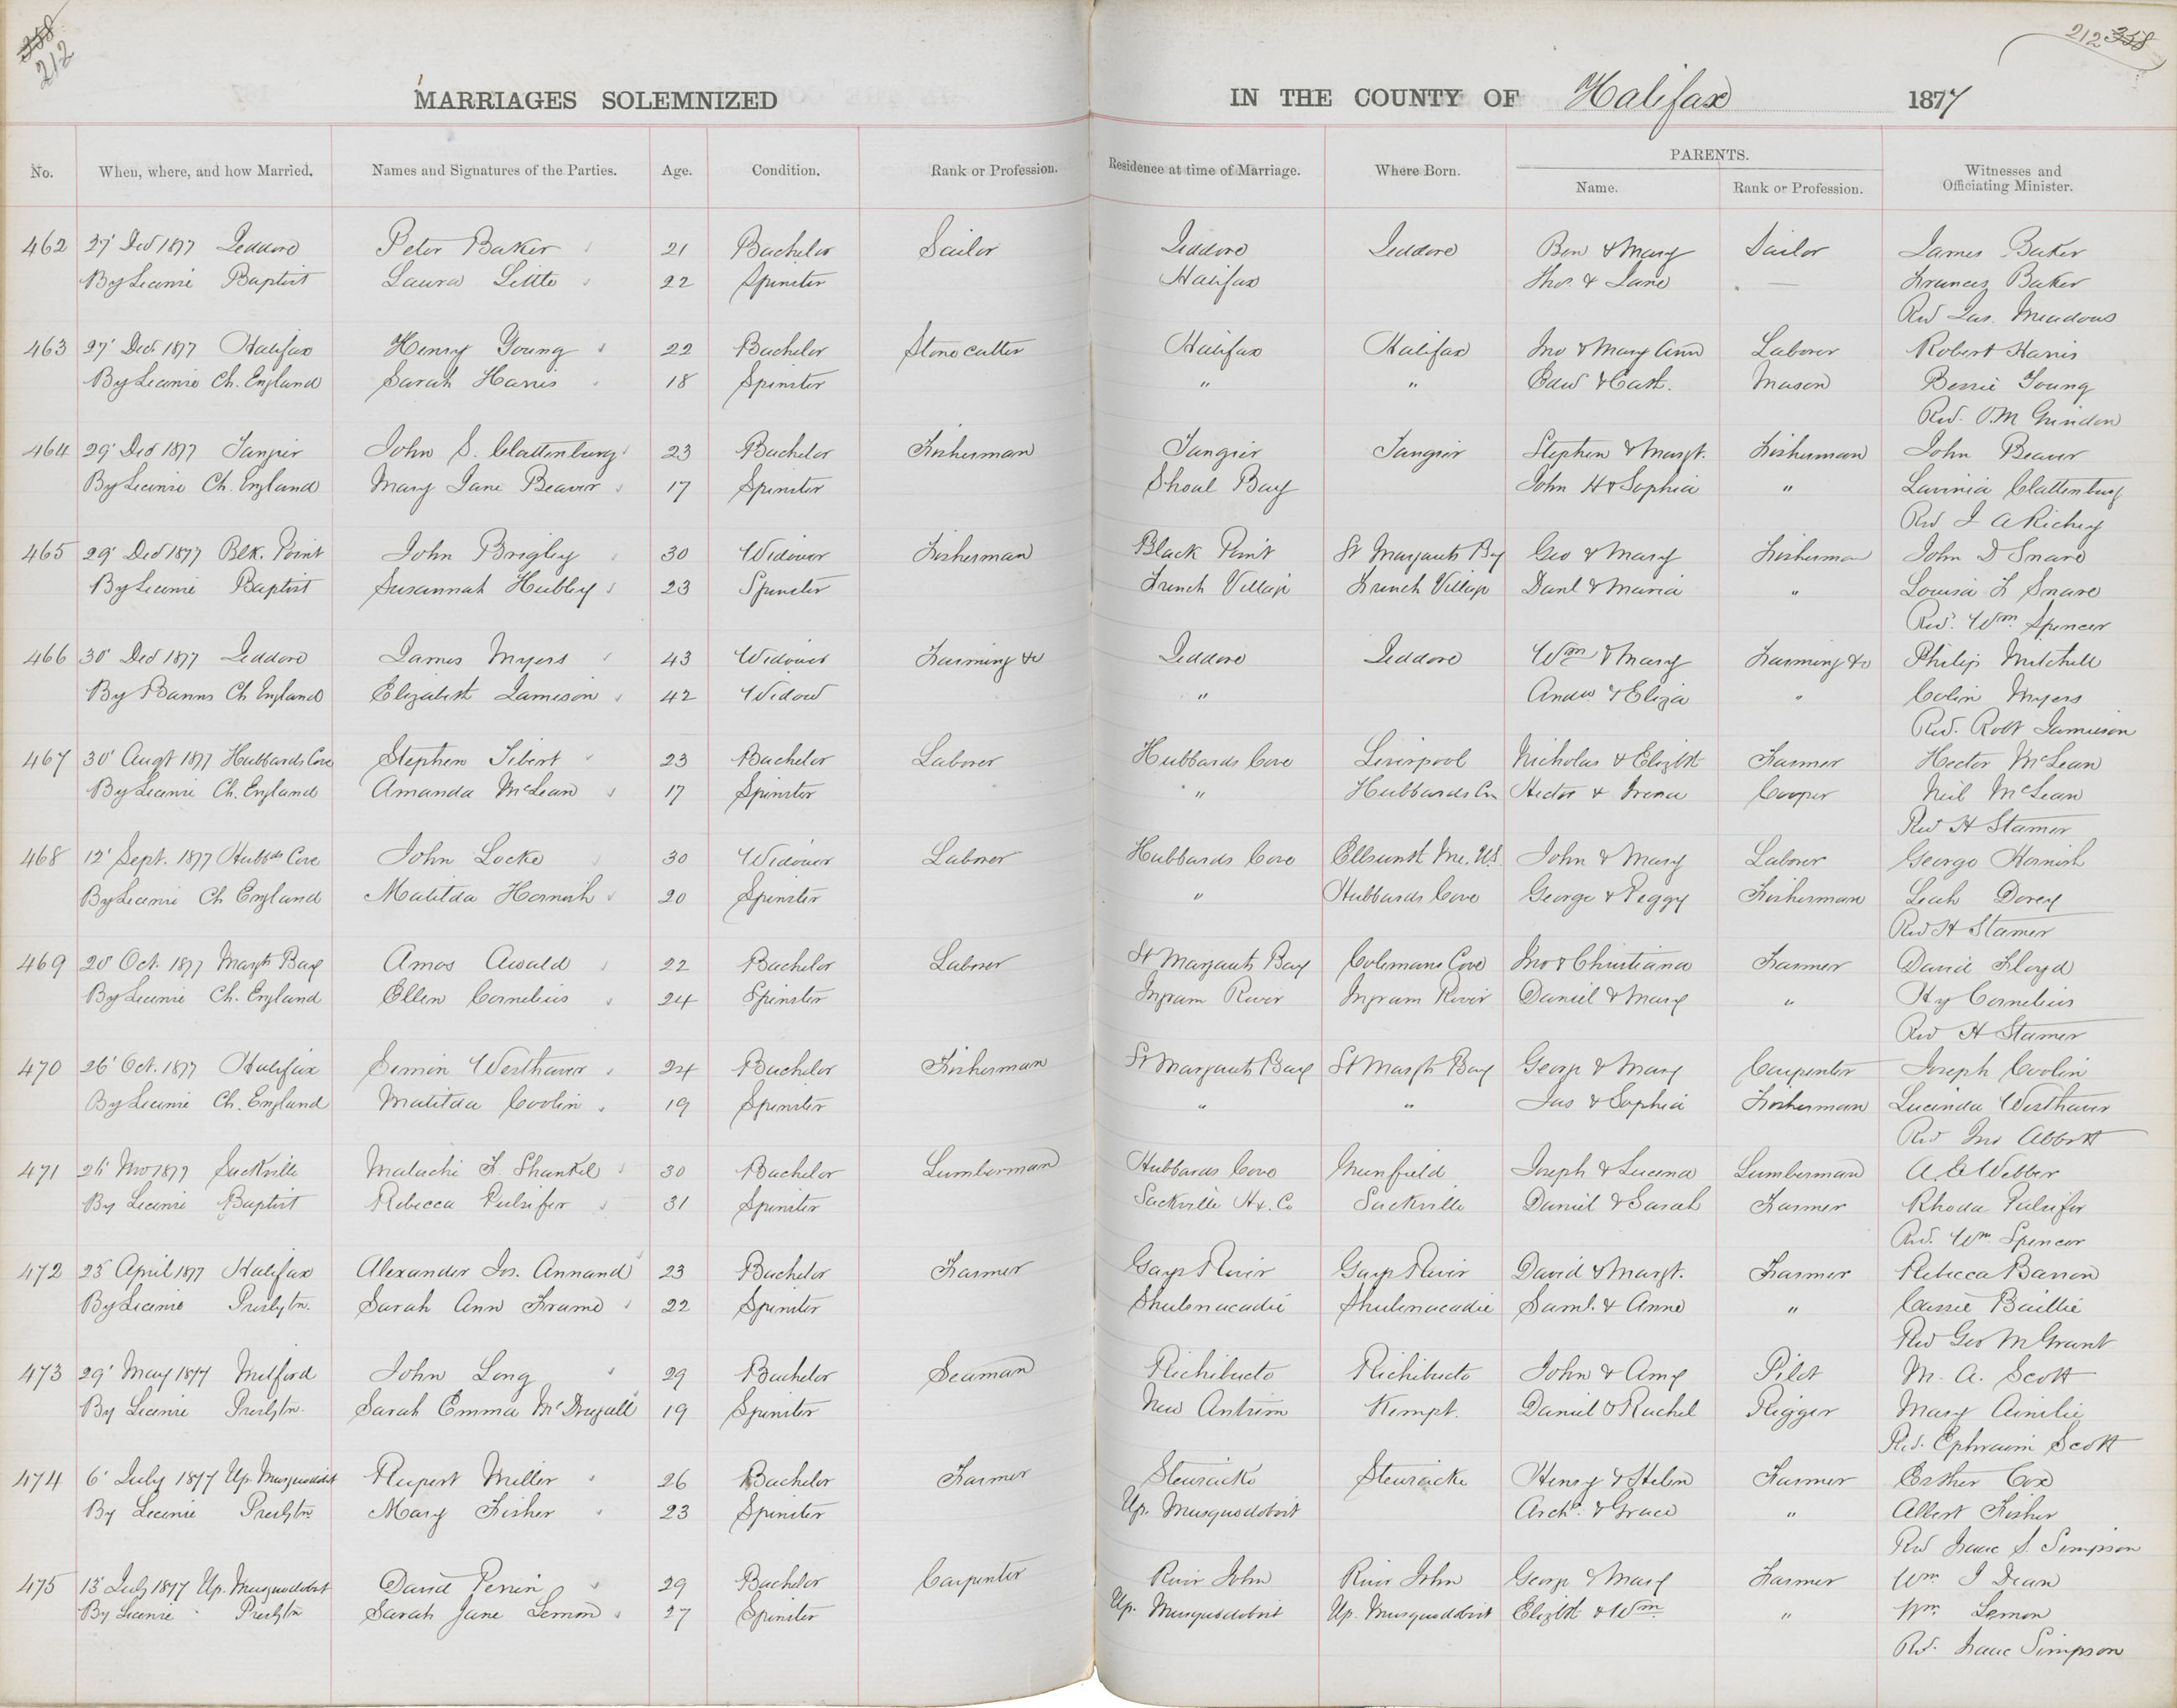 358
212
212 358
MARRIAGES SOLEMNIZED IN THE COUNTY OF Halifax 1877
No. When, where, and how Married. Names and Signatures of the Parties. Age. Condition. Rank or Profession. Residence at time of Marriage. Where Born. PARENTS. Witnesses and
Name. Rank or Profession. Officiating Minister.
462 27' Decr 1877 Jeddore Peter Baker 21 Bachelor Sailor Jeddore Jeddore Ben & Mary Sailor James Baker
By Licence Baptist Laura Little 22 Spinster Halifax Thos. & Jane — Frances Baker
Revd Jas. Meadows
463 27' Dec. 1877 Halifax Henry Young 22 Bachelor Stone cutter Halifax Halifax Jno & Mary Ann Laborer Robert Harris
By Licence Ch. England Sarah Harris 18 Spinster " " Edw & Cath. Mason Bessie Young
Revd. O.M. Grindon
464 29' Decr 1877 Tangier John S. Clattenburg 23 Bachelor Fisherman Tangier Tangier Stephen & Margt. Fisherman John Beaver
By Licence Ch. England Mary Jane Beaver 17 Spinster Shoal Bay John H & Sophia " Lavinia Clattenburg
Revd J A Richey
465 29' Decr 1877 Blk. Point John Brigley 30 Widower Fisherman Black Point St Margarets By Geo & Mary Fisherman John D Snare
By Licence Baptist Susannah Hubley 23 Spinster French Village French Village Danl & Maria " Louisa F Snare
Revd. Wm. Spencer
466 30' Decr 1877 Jeddore James Myers 43 Widower Farming &c Jeddore Jeddore Wm & Mary Farming &c Philip Mitchell
By Banns Ch England Elizabeth Jamieson 42 Widow " Andw & Eliza " Colin Myers
Revd. Robt Jamieson
467 30' Augt 1877 Hubbards Cove Stephen Tibert 23 Bachelor Laborer Hubbards Cove Liverpool Nicholas & Elizbth Farmer Hector McLean
By Licence Ch. England Amanda McLean 17 Spinster " Hubbards Cv Hector & Irena Cooper Neil McLean
Revd H Stamer
468 12' Sept. 1877 Hubbds Cove John Locke 30 Widower Laborer Hubbards Cove Me. U.S. John & Mary Laborer George Harnish
By Licence Ch England Matilda Harnish 20 Spinster " Hubbards Cove George & Peggy Fisherman Leah Dorey
Revd H Stamer
469 20' Oct. 1877 Margts Bay Amos Awald 22 Bachelor Laborer St Margarets Bay Colemans Cove Jno & Christiana Farmer David Floyd
By Licence Ch. England Ellen Cornelius 24 Spinster Ingram River Ingram River Daniel & Mary " Hy Cornelius
Revd H Stamer
470 26' Oct. 1877 Halifax Simon Westhaver 24 Bachelor Fisherman St Margarets Bay St Margts Bay George & Mary Carpenter Joseph Coolin
By Licence Ch. England Matilda Coolin 19 Spinster " " Jas & Sophia Fisherman Lucinda Westhaver
Revd Jno Abbott
471 26' Nov 1877 Sackville Malachi F. Shankel 30 Bachelor Lumberman Hubbards Cove Greenfield Joseph & Lucena Lumberman A. E Webber
By Licence Baptist Rebecca Pulsifer 31 Spinster Sackville Hx. Co Sackville Daniel & Sarah Farmer Rhoda Pulsifer
Revd. Wm Spencer
472 25' April 1877 Halifax Alexander Jos. Annand 23 Bachelor Farmer Gays River Gays River David & Margt. Farmer Rebecca Barron
By Licence Presbytn. Sarah Ann Frame 22 Spinster Shubenacadie Shubenacadie Saml. & Anne " Cassie Baillie
Revd Geo M Grant
473 29' May 1877 Milford John Long 29 Bachelor Seaman Richibucto Richibucto John & Amy Pilot M. A. Scott
By Licence Presbytn. Sarah Emma McDougall 19 Spinster New Antrim Kempt. Daniel & Rachel Rigger Mary Ainslie
Revd. Ephraim Scott
474 6' July 1877 Up. Musquodobt Rupert Miller 26 Bachelor Farmer Stewiacke Stewiacke Henry & Helen Farmer Esther Cox
By Licence Presbytn Mary Fisher 23 Spinster Up. Musquodoboit Archd. & Grace " Albert Fisher
Revd Isaac S. Simpson
475 13' July 1877 Up. Musquodobt David Perrin 29 Bachelor Carpenter River John River John George & Mary Farmer Wm J Dean
By Licence Presbytn Sarah Jane Lemon 27 Spinster Up. Musquodoboit Up. Musquodoboit Elizbth & Wm " Wm. Lemon
Revd. Isaac Simpson